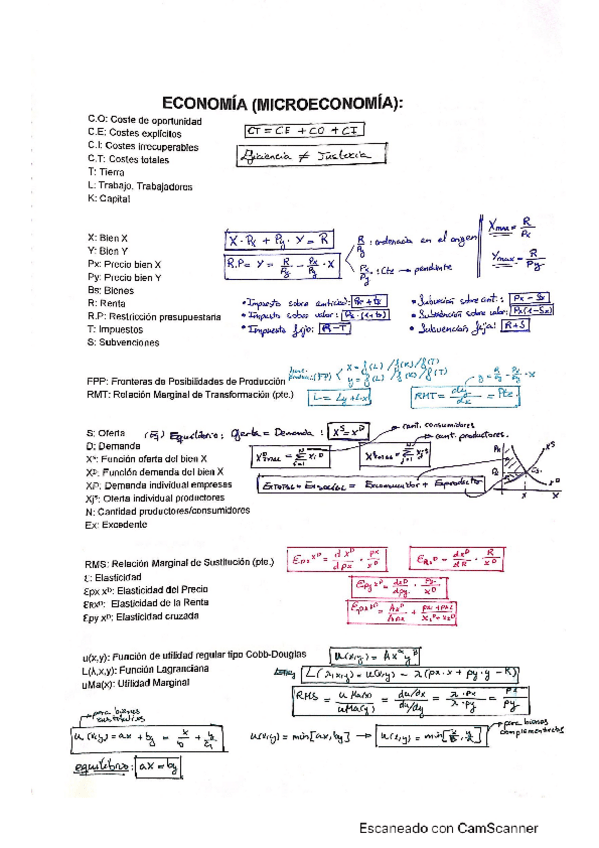 ECONOMÍA (MICROECONOMÍA):
C.O: Coste de oportunidad
C.E: Costes explícitos
C.I: Costes irrecuperables
C.T: Costes totales
T: Tierra
L: Trabajo. Trabajadores
K: Capital
CT = CE + CO + CI
Eficiencia ≠ Justicia
X: Bien X
Y: Bien Y
Px: Precio bien X
Py: Precio bien Y
Bs: Bienes
R: Renta
R.P: Restricción presupuestaria
T: Impuestos
S: Subvenciones
X · Px + Py · Y = R
R.P = Y = R/Py - Px/Py · X
R/Py : ordenada en el origen
Px/Py : Cte → pendiente
Xmax = R/Px
Ymax = R/Py
• Impuesto sobre cantidad: Px + tx
• Impuesto sobre valor: Px · (1+t)
• Impuesto fijo: R-T
• Subvención sobre cant.: Px - Sx
• Subvención sobre valor: Px · (1-Sx)
• Subvención fija: R+S
FPP: Fronteras de Posibilidades de Producción
RMT: Relación Marginal de Transformación (pte.)
L = Ly + Lx
RMT = dy/dx = Pte.
S: Oferta
D: Demanda
Xˢ: Función oferta del bien X
Xᴰ: Función demanda del bien X
XiᴰD: Demanda individual empresas
Xjˢ: Oferta individual productores
N: Cantidad productores/consumidores
Ex: Excedente
(Eq) Equilibrio: Oferta = Demanda : Xˢ = Xᴰ
→ cant. consumidores
→ cant. productores.
Extotal = Exsocial = Exconsumidor + Exproductor
RMS: Relación Marginal de Sustitución (pte.)
Ɛ: Elasticidad
Ɛpx xᴰ: Elasticidad del Precio
ƐRxᴰ: Elasticidad de la Renta
Ɛpy xᴰ: Elasticidad cruzada
Ɛpx xᴰ = dXᴰ/dpx · px/xᴰ
ƐR,xᴰ = dxᴰ/dR · R/xᴰ
Ɛpy xᴰ = dxᴰ/dpy · py/xᴰ
u(x,y): Función de utilidad regular tipo Cobb-Douglas
L(λ,x,y): Función Lagranciana
uMa(x): Utilidad Marginal
u(x,y) = A xᵅ yᵝ
L(λ,x,y) = u(x,y) - λ(px·x + py·y - R)
RMS = uMa(x)/uMa(y) = du/dx/du/dy = λ·px/λ·py = px/py
→ para bienes sustitutivos
u(x,y) = ax + by
equilibrio: ax = by
u(x,y) = min[ax, by] →
→ para bienes complementarios
Escaneado con CamScanner